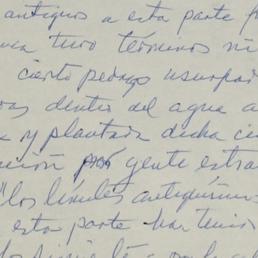 antiguos a esta parte
nunca tuvo términos ni
cierto pedazo usurpad
dentro del agua a
y plantada dicha ce
gente estra
"los límites antiquísimos
esta parte han tenid